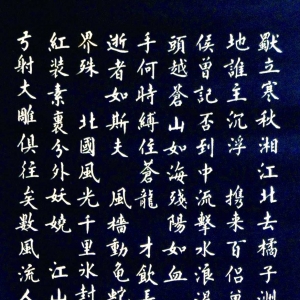 獨立寒秋湘江北去橘子洲
地誰主沉浮 携来百侣
侯曾記否到中流擊水浪
頭越蒼山如海殘陽如血
手何時縛住蒼龍 才飲長
逝者如斯夫 風檣動龜蛇
界殊 北國風光千里冰封
紅装素裹分外妖嬈 江山
弓射大雕俱往矣數風流人